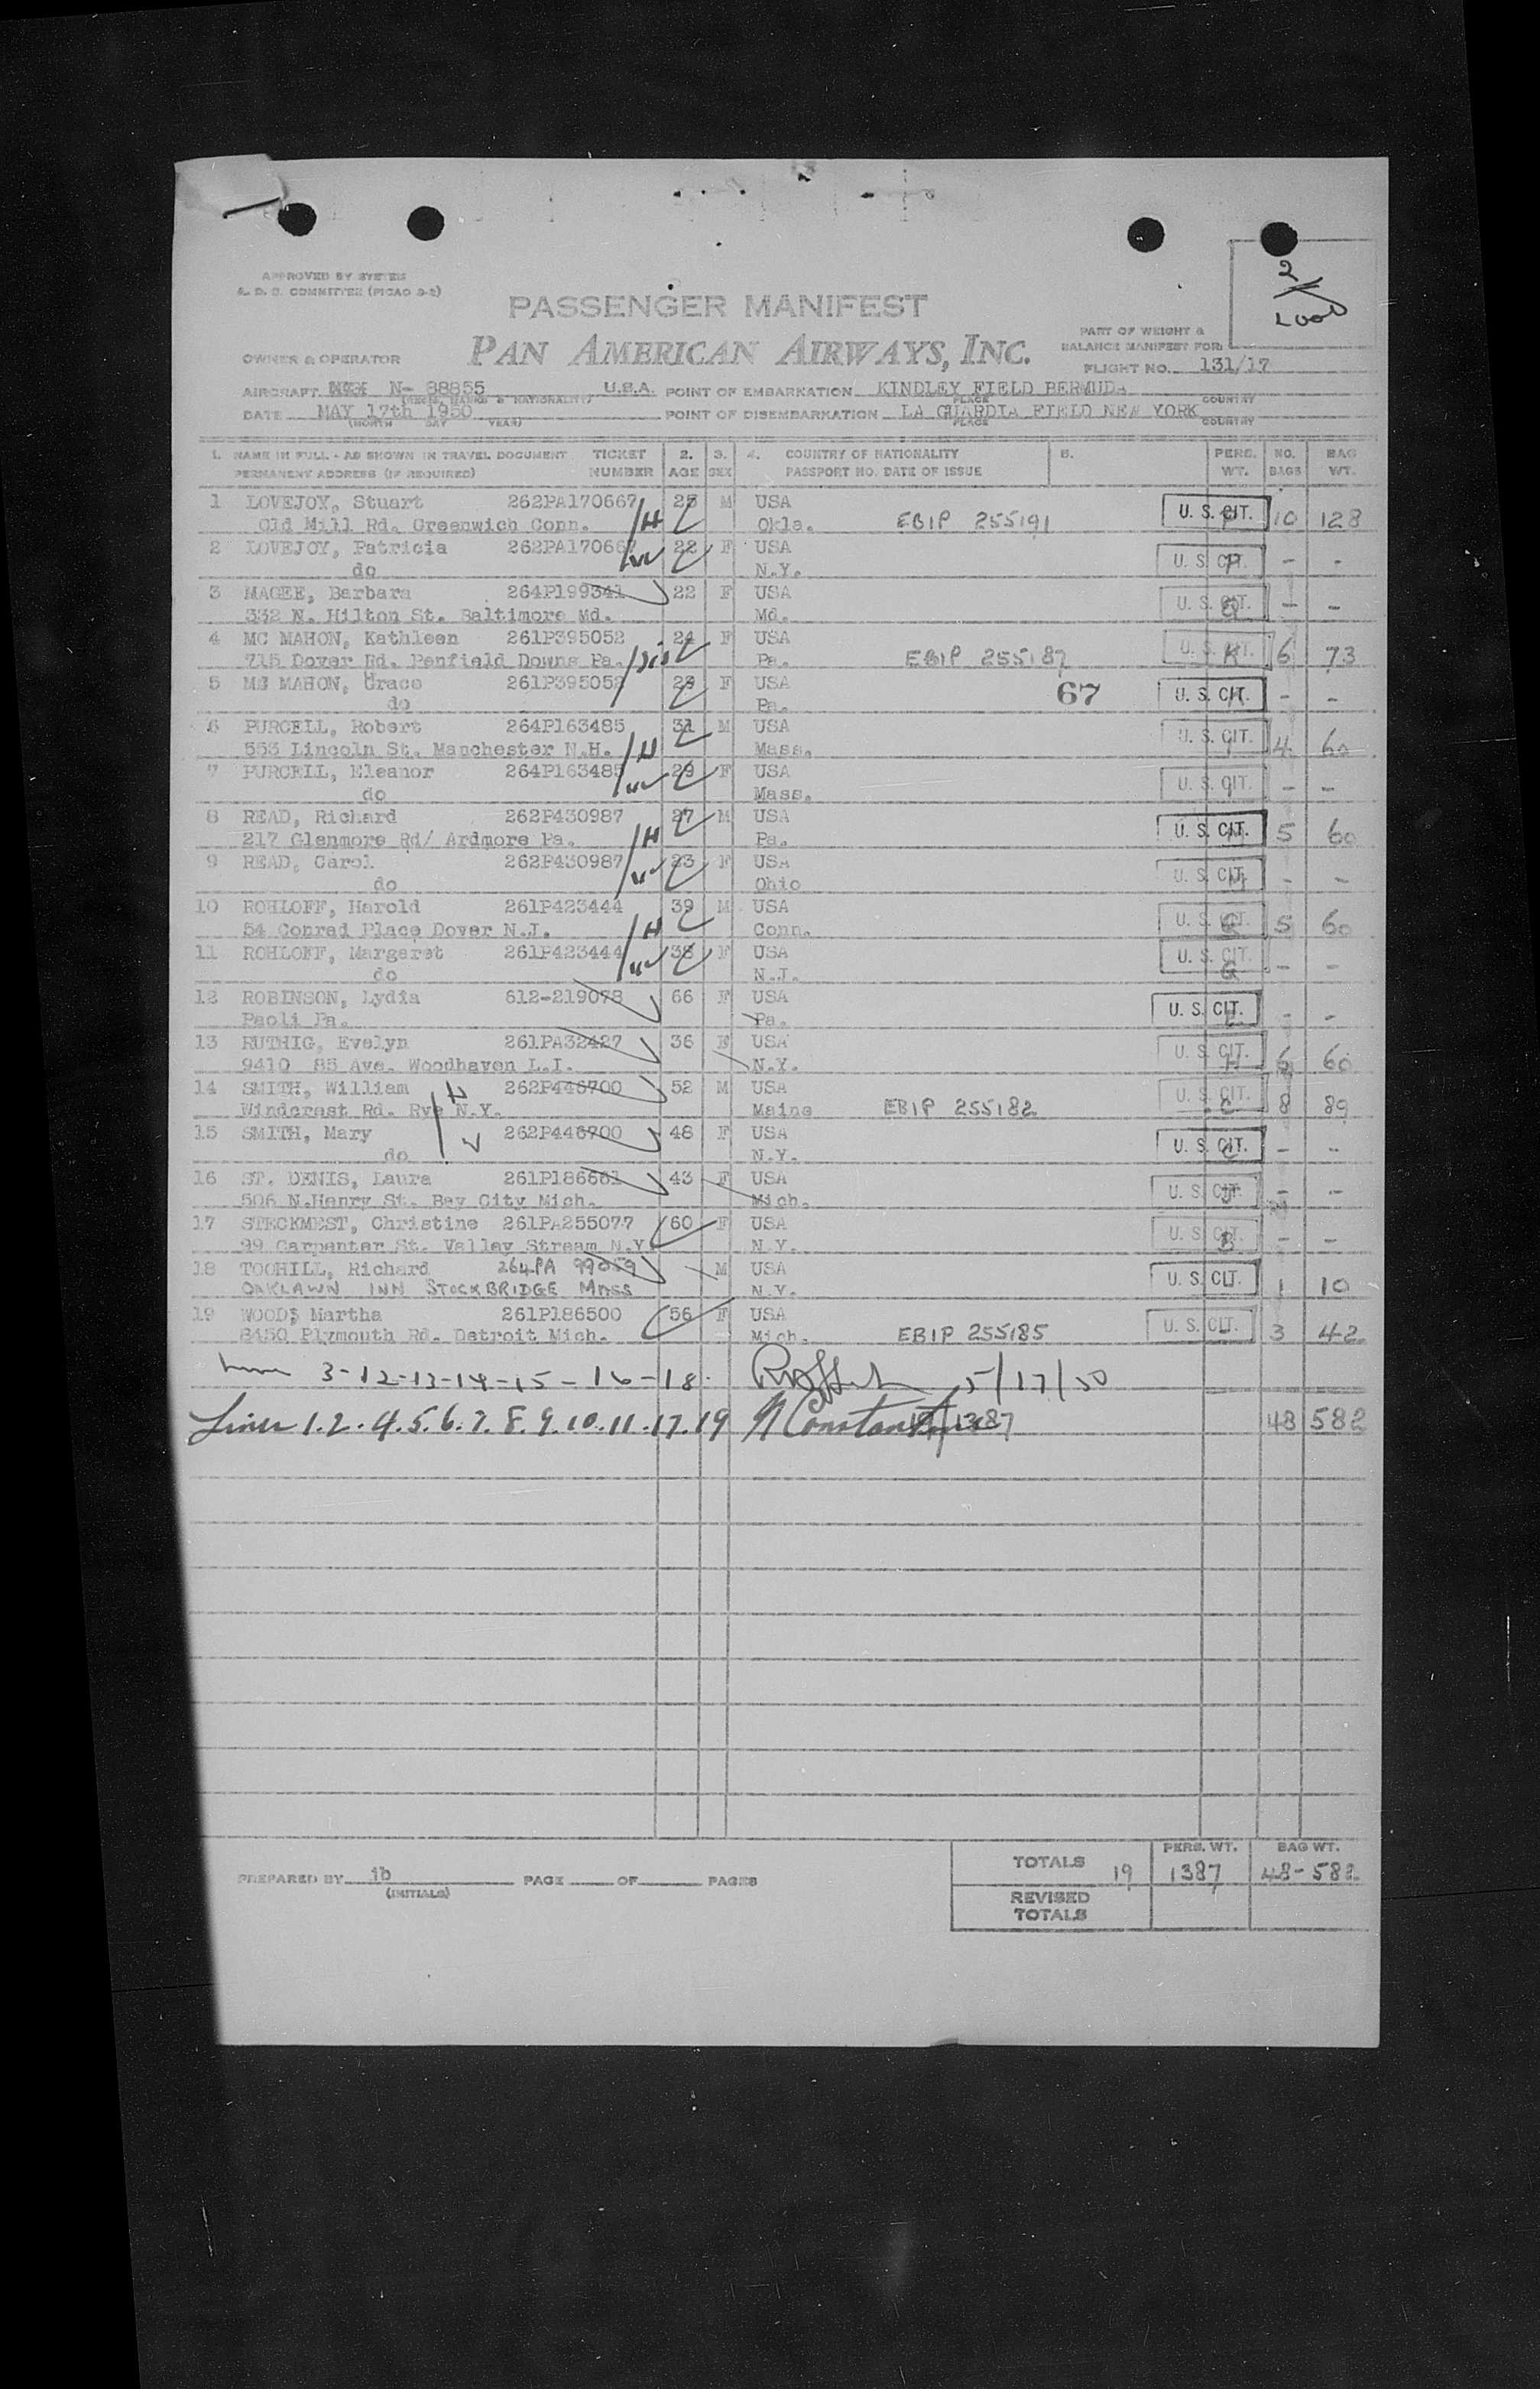 APPROVED BY SYSTEM
A. D. S. COMMITTEE (PICAO 9-2)
PASSENGER MANIFEST
PAN AMERICAN AIRWAYS, INC.
PART OF WEIGHT &
BALANCE MANIFEST FOR
OWNER & OPERATOR
FLIGHT NO. 131/17
AIRCRAFT N- 88855 U.S.A. POINT OF EMBARKATION KINDLEY FIELD BERMUDA
PLACE COUNTRY
DATE MAY 17th 1950 POINT OF DISEMBARKATION LA GUARDIA FIELD NEW YORK
(MONTH DAY YEAR) PLACE COUNTRY
1. NAME IN FULL - AS SHOWN IN TRAVEL DOCUMENT TICKET 2. 3. 4. COUNTRY OF NATIONALITY 5. PERS. NO. BAG
PERMANENT ADDRESS (IF REQUIRED) NUMBER AGE SEX PASSPORT NO. DATE OF ISSUE WT. BAGS WT.
1 LOVEJOY, Stuart 262PA170667 25 M USA U. S. CIT. 10 128
Old Mill Rd. Greenwich Conn. H Okla. EBIP 255191
2 LOVEJOY, Patricia 262PA170667 22 F USA U. S. CIT. - -
do W N.Y.
3 MAGEE, Barbara 264P199341 22 F USA U. S. CIT. - -
332 N. Hilton St. Baltimore Md. Md.
4 MC MAHON, Kathleen 261P395052 24 F USA U. S. CIT. 6 73
715 Dover Rd. Penfield Downs Pa. Sis Pa. EBIP 255187
5 MC MAHON, Grace 261P395052 23 F USA 67 U. S. CIT. - -
do Pa.
6 PURCELL, Robert 264P163485 31 M USA U. S. CIT. 4 60
553 Lincoln St. Manchester N.H. H Mass.
7 PURCELL, Eleanor 264P163485 29 F USA U. S. CIT. - -
do W Mass.
8 READ, Richard 262P430987 27 M USA U. S. CIT. 5 60
217 Glenmore Rd/ Ardmore Pa. H Pa.
9 READ, Carol 262P430987 23 F USA U. S. CIT. - -
do W Ohio
10 ROHLOFF, Harold 261P423444 39 M USA U. S. CIT. 5 60
54 Conrad Place Dover N.J. H Conn.
11 ROHLOFF, Margaret 261P423444 38 F USA U. S. CIT. - -
do W N.J.
12 ROBINSON, Lydia 612-219078 66 F USA U. S. CIT. - -
Paoli Pa. Pa.
13 RUTHIG, Evelyn 261PA32427 36 F USA U. S. CIT. 6 60
9410 85 Ave. Woodhaven L.I. N.Y.
14 SMITH, William H 262P446700 52 M USA U. S. CIT. 8 89
Windcrest Rd. Rye N.Y. Maine EBIP 255182
15 SMITH, Mary 262P446700 48 F USA U. S. CIT. - -
do N.Y.
16 ST. DENIS, Laura 261P186661 43 F USA U. S. CIT. - -
506 N.Henry St. Bay City Mich. Mich.
17 STECKMEST, Christine 261PA255077 60 F USA U. S. CIT. - -
99 Carpenter St. Valley Stream N.Y. N.Y.
18 TOOHILL, Richard 264PA 99059 M USA U. S. CIT. 1 10
OAKLAWN INN STOCKBRIDGE MASS N.Y.
19 WOODS Martha 261P186500 56 F USA U. S. CIT. 3 42
8450 Plymouth Rd. Detroit Mich. Mich. EBIP 255185
3-12-13-14-15-16-18. 5/17/50
Lines 1.2.4.5.6.7.8.9.10.11.17.19 1387 48 582
PREPARED BY ib PAGE OF PAGES
(INITIALS)
TOTALS 19 PERS. WT. 1387 BAG WT. 48-582
REVISED
TOTALS